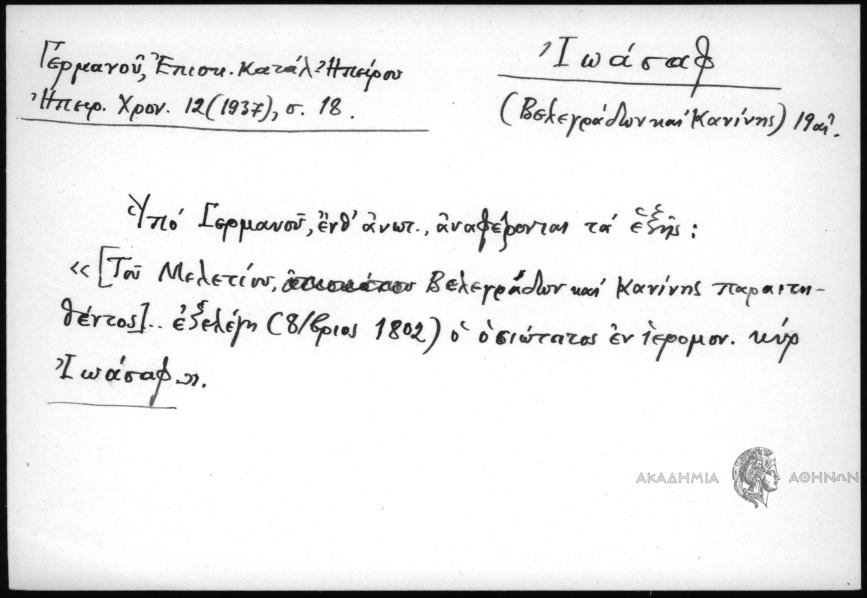 Γερμανοῦ, Ἐπισκ. Κατάλ. Ἠπείρου
Ἠπειρ. Χρον. 12 (1937), σ. 18.
Ἰωάσαφ
(Βελεγράδων καὶ Κανίνης) 19αἰ.
Ὑπὸ Γερμανοῦ, ἔνθ' ἀνωτ., ἀναφέρονται τὰ ἑξῆς:
«[Τοῦ Μελετίου, Βελεγράδων καὶ Κανίνης παραιτη-
θέντος].. ἐξελέγη (8/βριος 1802) ὁ ὁσιώτατος ἐν ἱερομον. κὺρ
Ἰωάσαφ».
ΑΚΑΔΗΜΙΑ ΑΘΗΝΩΝ